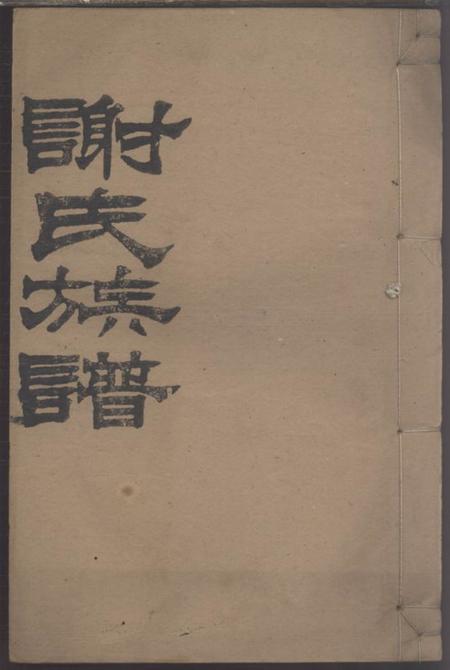 謝氏族譜